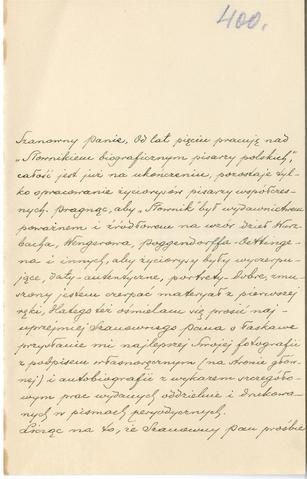 400.
Szanowny Panie, Od lat pięciu pracuję nad
„Słownikiem biograficznym pisarzy polskich”,
całość jest już na ukończeniu, pozostaje tyl-
ko opracowanie życiorysów pisarzy współczes-
nych. Pragnąc, aby „Słownik” był wydawnictwem
poważnem i źródłowem na wzór dzieł Wurz-
bacha, Wengerowa, Poggendorffa, Oettinge-
ra i innych, aby życiorysy były wyczerpu-
jące, daty autentyczne, portrety dobre, zmu-
szony jestem czerpać materyał z pierwszej
ręki, dlatego też ośmielam się prosić naj-
uprzejmiej Szanownego Pana o łaskawe
przysłanie mi najlepszej Swojej fotografii
z podpisem własnoręcznym (na stronie głów-
nej) i autobiografii z wykazem szczegóło-
wym prac wydanych oddzielnie i drukowa-
nych w pismach peryodycznych.
Licząc na to, że Szanowny Pan prośbie